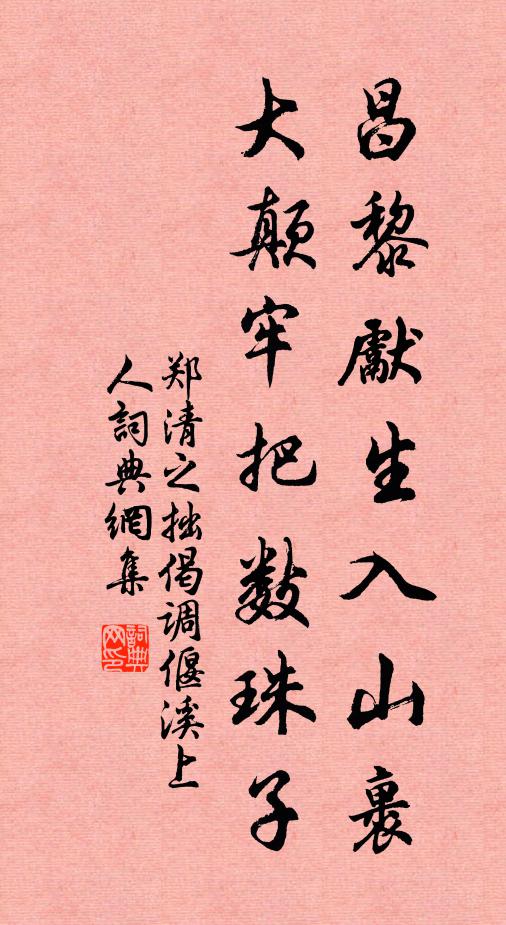 昌黎獻生入山裹
大顛牢把數珠子
郑清之拙偈调偃溪上
人詞典網集
詞典
网印